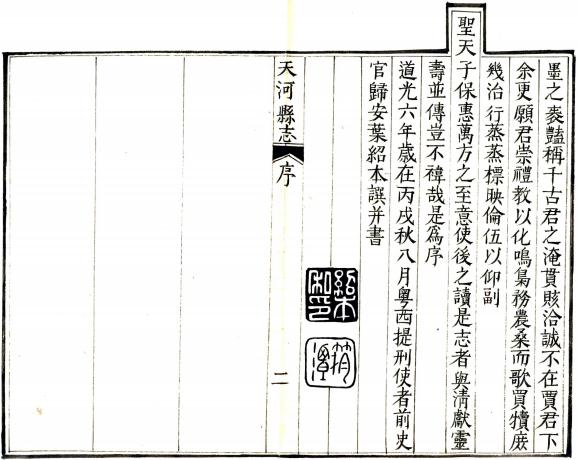 墨之裘豔稱千古君之淹貫賅洽誠不在賈君下
余更願君崇禮教以化鳴梟務農桑而歌買犢庶
幾治行蒸蒸標映倫伍以仰副
聖天子保惠萬方之至意使後之讀是志者與清獻靈
壽並傳豈不禕哉是爲序
道光六年歲在丙戌秋八月粵西提刑使者前史
官歸安葉紹本譔并書
紹本私印
筠潭
天河縣志
序
二